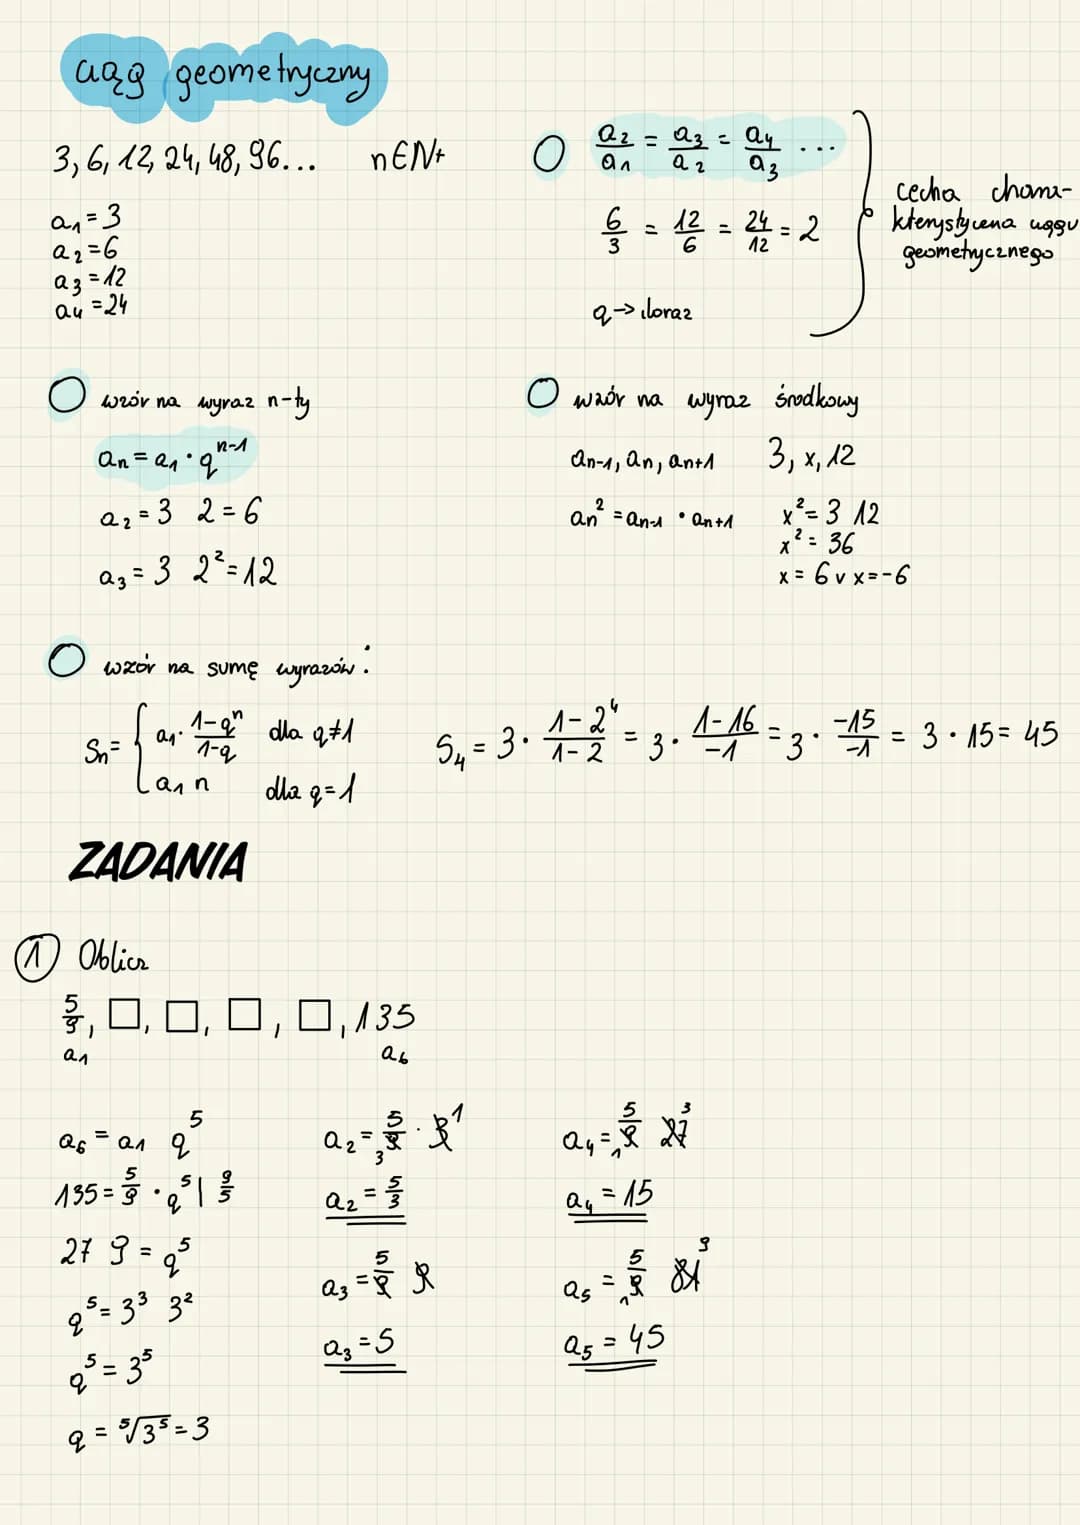 ciąg geometryczny
3, 6, 12, 24, 48, 96... n∈N+
a₁ = 3
a₂ = 6
a₃ = 12
a₄ = 24
a₂/a₁ = a₃/a₂ = a₄/a₃ ...
6/3 = 12/6 = 24/12 = 2
q → iloraz
cecha chara-
kterystyczna ciągu
geometrycznego
wzór na wyraz n-ty
aₙ = a₁ · qⁿ⁻¹
a₂ = 3 2 = 6
a₃ = 3 2² = 12
wzór na wyraz środkowy
aₙ₋₁, aₙ, aₙ₊₁ 3, x, 12
aₙ² = aₙ₋₁ · aₙ₊₁ x² = 3 12
x² = 36
x = 6 v x = -6
wzór na sumę wyrazów:
Sₙ = { a₁ · (1-qⁿ)/(1-q) dla q≠1
a₁ n dla q=1
S₄ = 3 · (1-2⁴)/(1-2) = 3 · (1-16)/(-1) = 3 · (-15)/(-1) = 3 · 15 = 45
ZADANIA
① Oblicz
5/9, □, □, □, □, 135
a₁ a₆
a₆ = a₁ q⁵
135 = 5/9 · q⁵ | 9/5
27 9 = q⁵
q⁵ = 3³ 3²
q⁵ = 3⁵
q = ⁵√3⁵ = 3
a₂ = 5/9 3 · 3 1
a₂ = 5/3
a₃ = 5/9 9
a₃ = 5
a₄ = 5/9 1 27 3
a₄ = 15
a₅ = 5/9 1 81 9
a₅ = 45